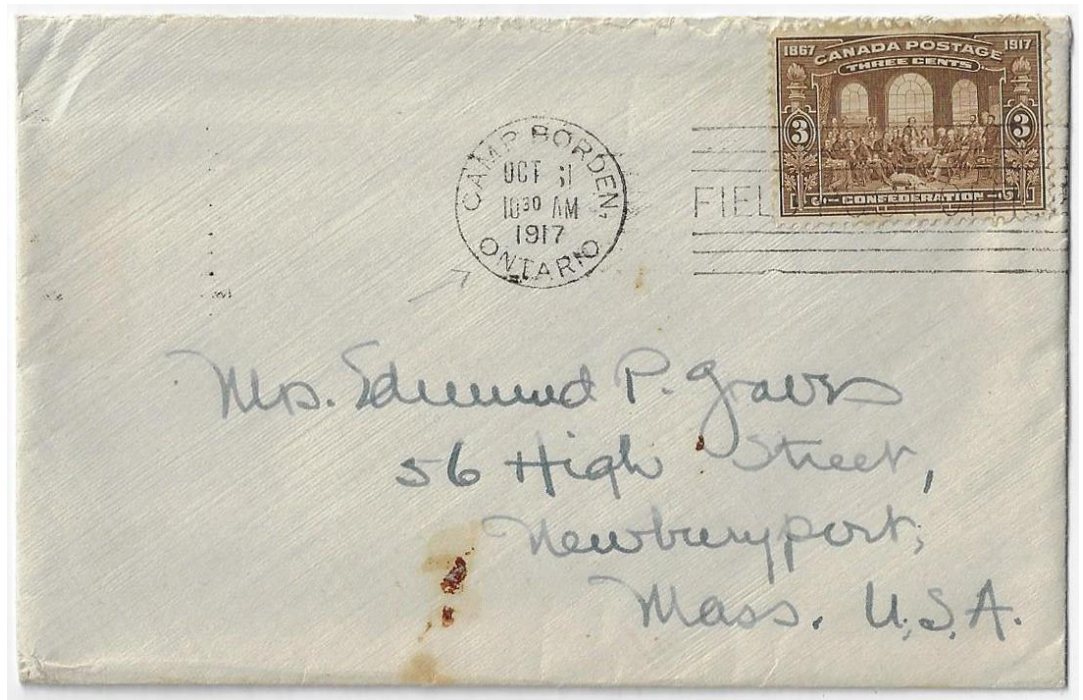 1867 CANADA POSTAGE 1917
THREE CENTS
3 3
CONFEDERATION
CAMP BORDEN,
OCT 31
10 30 AM
1917
ONTARIO
FIEL
Mrs. Edmund P. Graves
56 High Street,
Newburyport,
Mass. U.S.A.